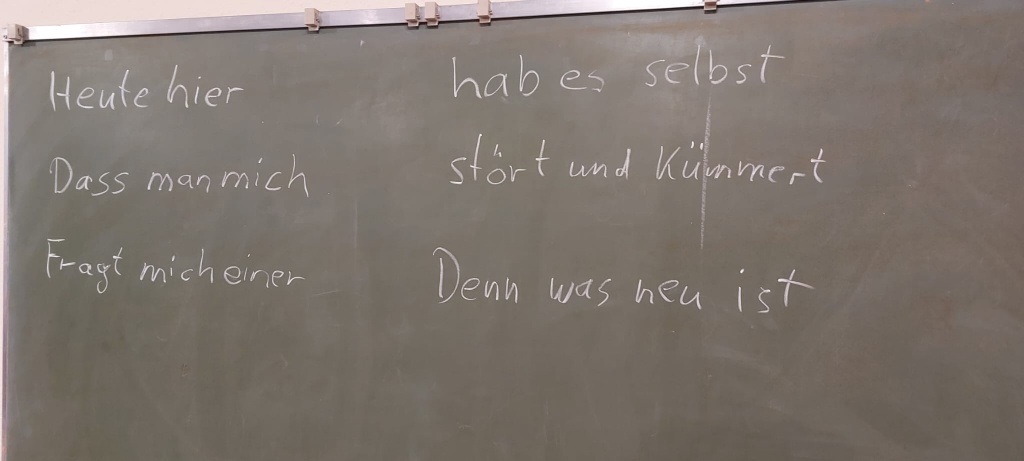 Heute hier
Dass man mich
Fragt mich einer
hab es selbst
stört und Kümmert
Denn was neu ist